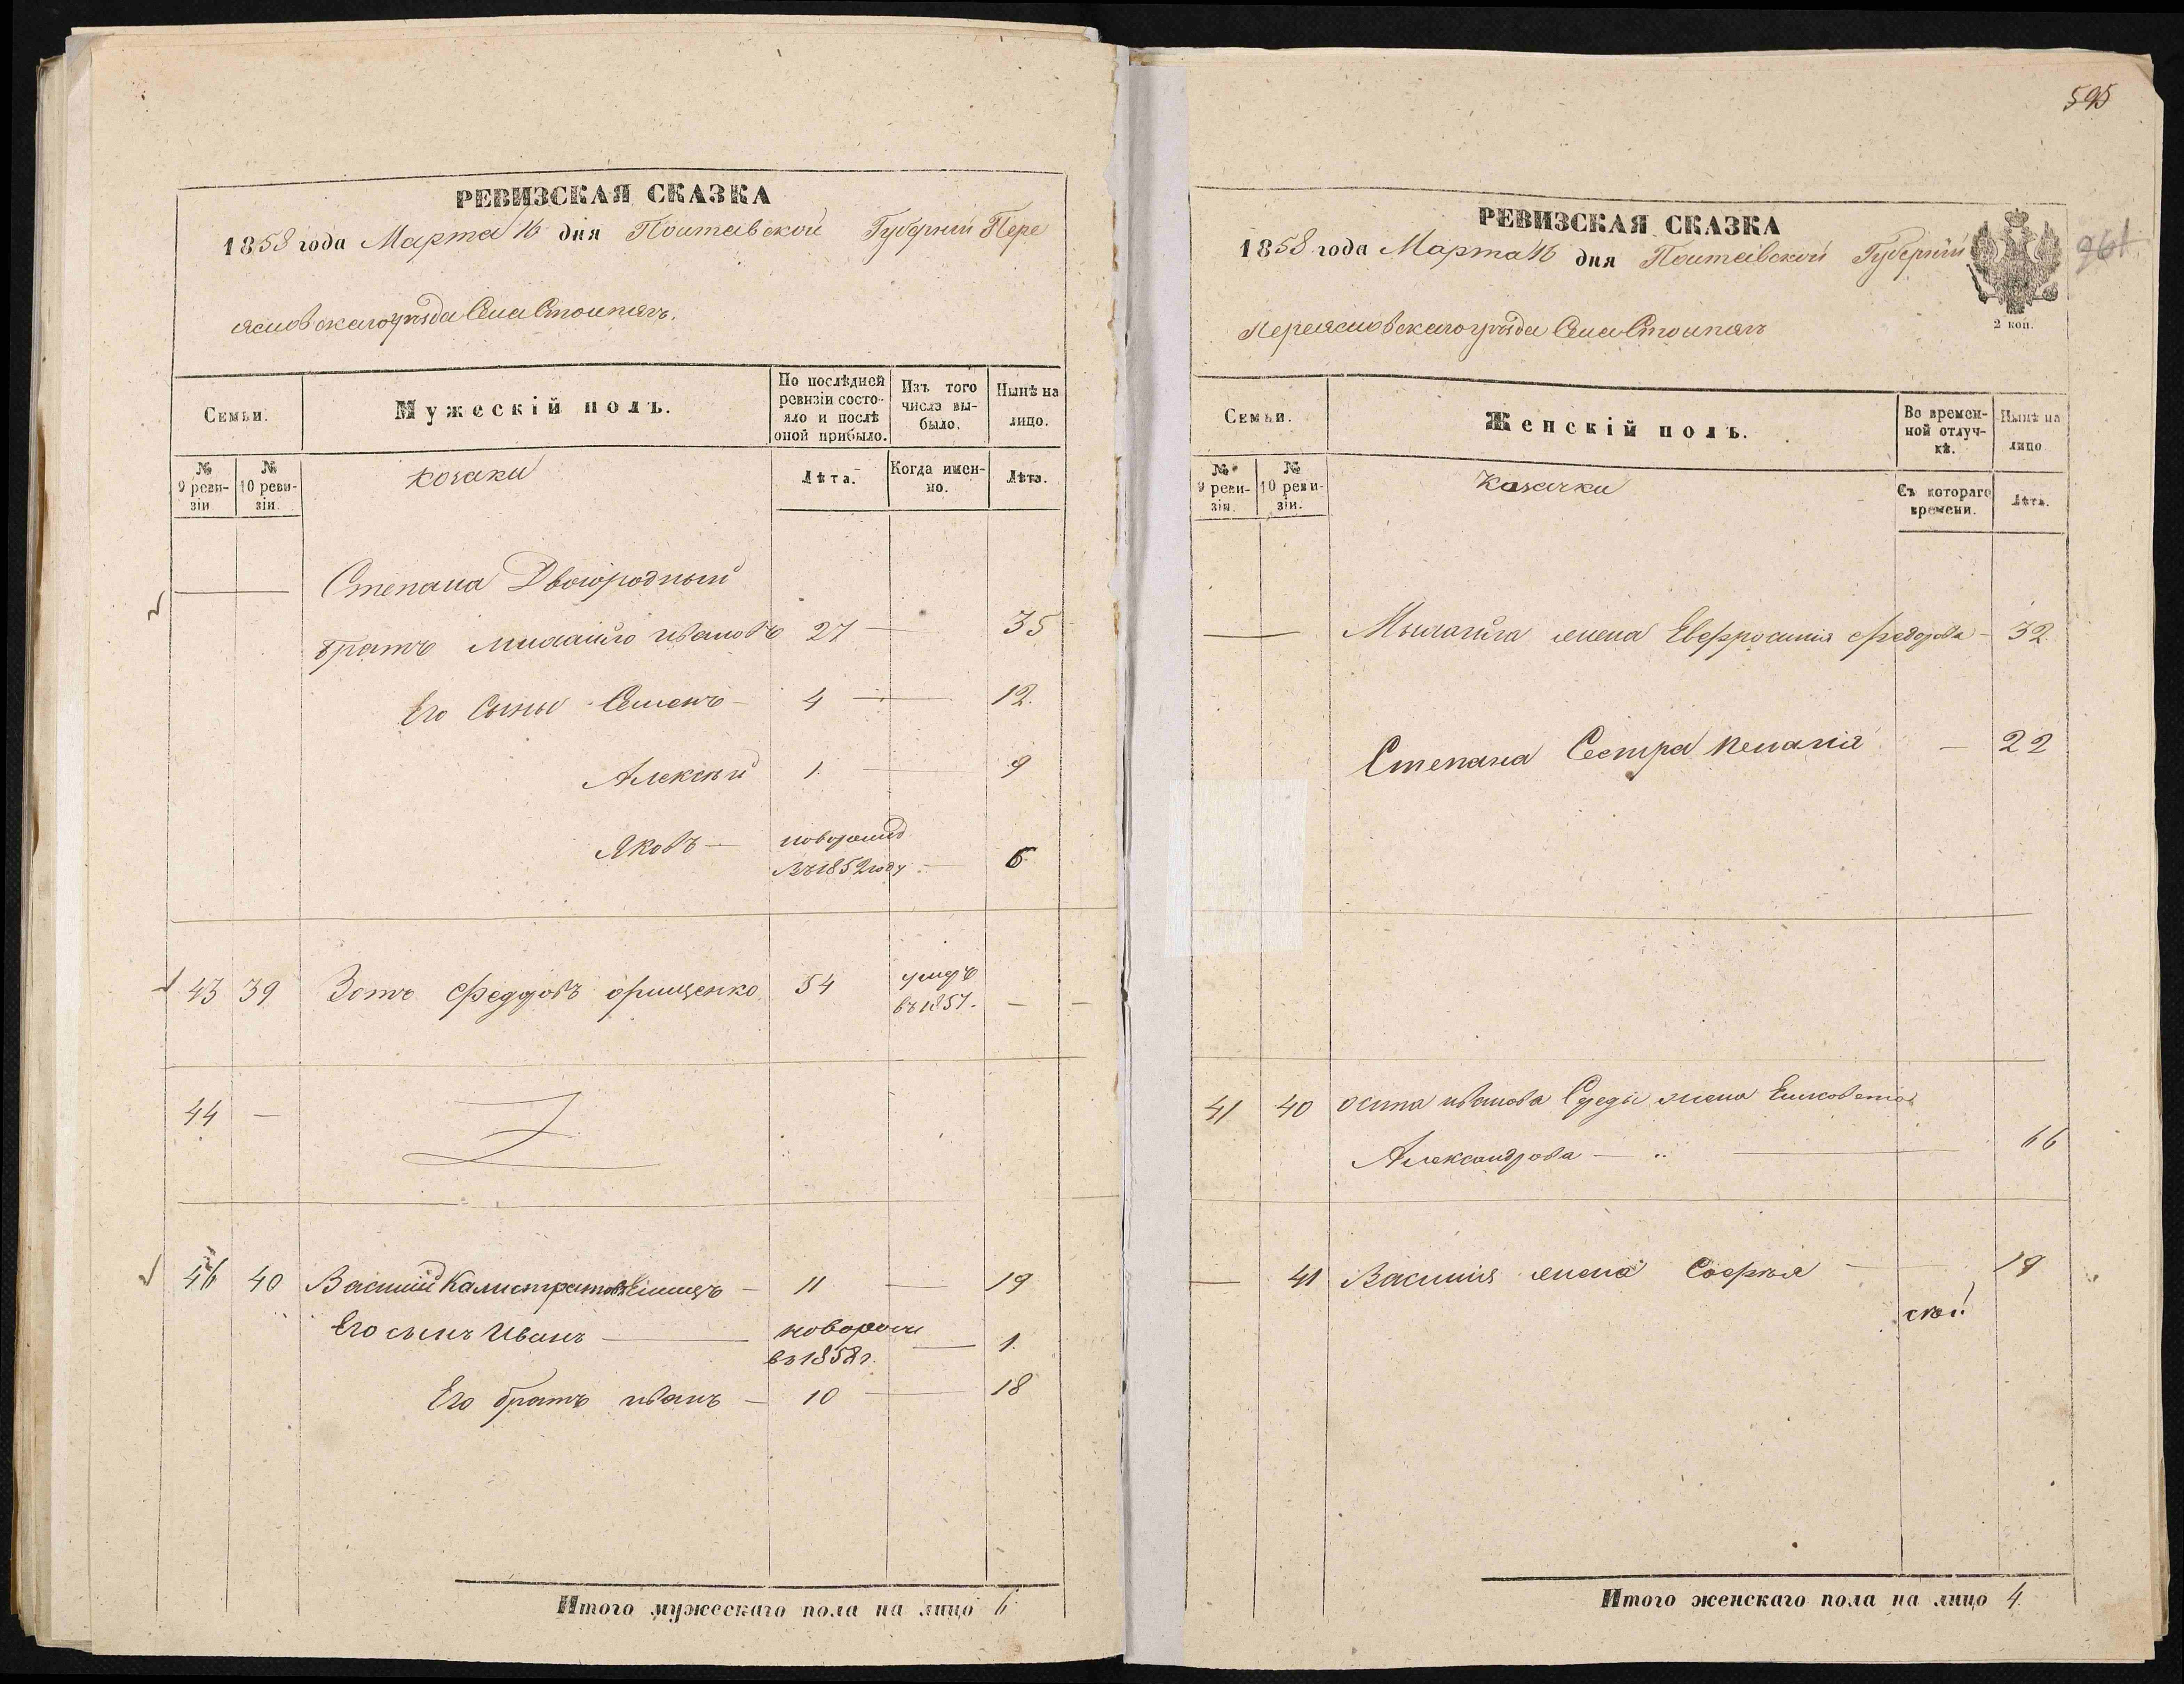 РЕВИЗСКАЯ СКАЗКА
1858 года Марта 16 дня Полтавской Губернии Пере
яславскаго уѣзда Села Столпяг.
Семьи.
Мужескій полъ.
По послѣдней ревизіи состояло и послѣ оной прибыло.
Изъ того числа выбыло.
Нынѣ на лицо.
№ 9 ревизіи
№ 10 ревизіи.
козаки
Лѣта.
Когда именно.
Лѣта.
Степана Двоюродный
братъ Михайло Ивановъ 27 — 35
Его Сыны Семенъ — 4 — 12.
Алексѣй 1. — 9
Яковъ — новорожд.
въ 1852 году — 6.
43 39 Зотъ Федоровъ Орищенко 54 умеръ
въ 1857. —
44 —
46 40 Василий Калистратовъ — 11 — 19
Его сынъ Иванъ — новорож
въ 1858 г. — 1.
Его братъ Иванъ — 10 — 18
Итого мужескаго пола на лицо 6.
595
РЕВИЗСКАЯ СКАЗКА
1858 года Марта 16 дня Полтавской Губерніи
961
Переяславскаго уѣзда Села Столпяг
2 коп.
Семьи.
Женскій полъ.
Во временной отлучкѣ.
Нынѣ на лицо
№ 9 ревизіи.
№ 10 ревизіи.
Казачки
Съ котораго времени.
Лѣта.
— Михайла жена Евфросинія Федорова — 32.
Степана Сестра Пелагія — 22
41 40 Осипа Иванова Середы жена Елисовета
Александрова — 66
— 41 Василия жена Софья — 19
Итого женскаго пола на лицо 4.